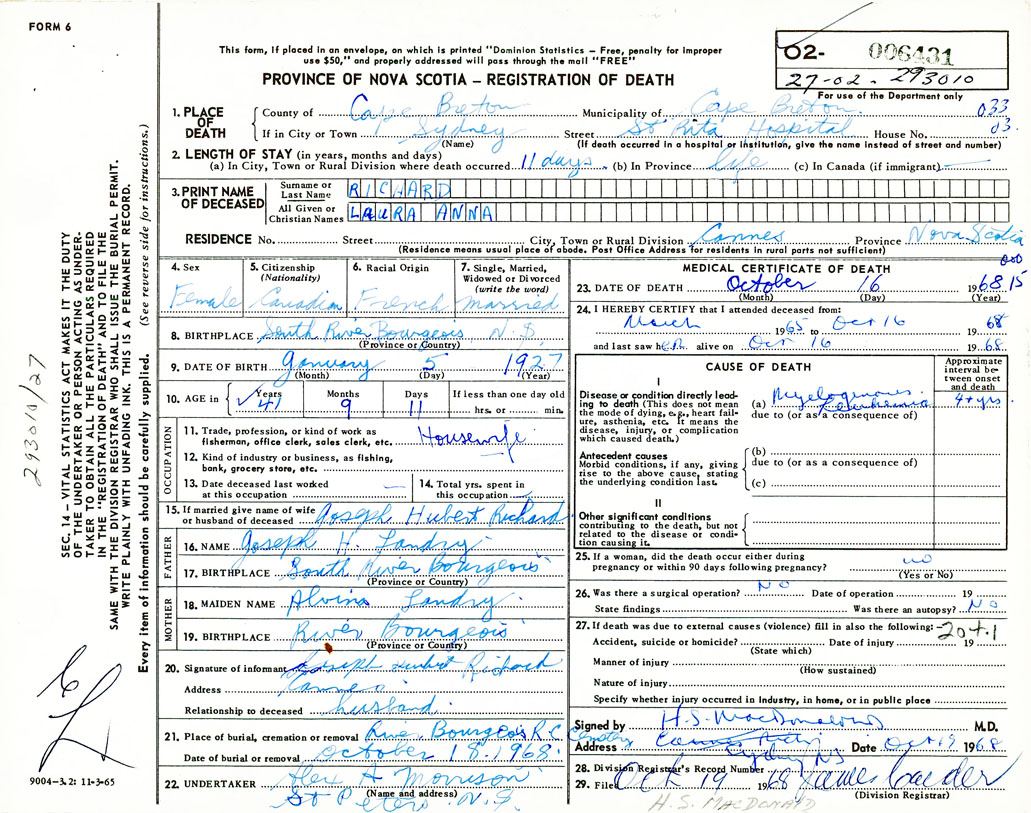 FORM 6
This form, if placed in an envelope, on which is printed "Dominion Statistics – Free, penalty for improper
use $50," and properly addressed will pass through the mail "FREE"
PROVINCE OF NOVA SCOTIA – REGISTRATION OF DEATH
02- 006431
27-02. 293010
For use of the Department only
SEC. 14 – VITAL STATISTICS ACT MAKES IT THE DUTY
OF THE UNDERTAKER OR PERSON ACTING AS UNDER-
TAKER TO OBTAIN ALL THE PARTICULARS REQUIRED
IN THE "REGISTRATION OF DEATH" AND TO FILE THE
SAME WITH THE DIVISION REGISTRAR WHO SHALL ISSUE THE BURIAL PERMIT.
WRITE PLAINLY WITH UNFADING INK. THIS IS A PERMANENT RECORD.
Every item of information should be carefully supplied. (See reverse side for instructions.)
293010/27
9004-3.2: 11-3-65
1. PLACE OF DEATH
County of Cape Breton Municipality of Cape Breton 033
If in City or Town Sydney Street St Rita Hospital House No. 03.
(Name) (If death occurred in a hospital or institution, give the name instead of street and number)
2. LENGTH OF STAY (in years, months and days)
(a) In City, Town or Rural Division where death occurred 11 days (b) In Province life (c) In Canada (if immigrant) —
3. PRINT NAME OF DECEASED
Surname or Last Name RICHARD
All Given or Christian Names LAURA ANNA
RESIDENCE No. Street City, Town or Rural Division Cannes Province Nova Scotia
(Residence means usual place of abode. Post Office Address for residents in rural parts not sufficient)
4. Sex 5. Citizenship (Nationality) 6. Racial Origin 7. Single, Married, Widowed or Divorced (write the word)
Female Canadian French Married
8. BIRTHPLACE South River Bourgeois N.S.
(Province or Country)
9. DATE OF BIRTH January 5 1927
(Month) (Day) (Year)
10. AGE in Years Months Days If less than one day old
✓ 41 9 11 hrs. or min.
OCCUPATION
11. Trade, profession, or kind of work as
fisherman, office clerk, sales clerk, etc. Housewife
12. Kind of industry or business, as fishing,
bank, grocery store, etc.
13. Date deceased last worked
at this occupation —
14. Total yrs. spent in
this occupation —
15. If married give name of wife
or husband of deceased Joseph Hubert Richard
FATHER
16. NAME Joseph H. Landry
17. BIRTHPLACE South River Bourgeois
(Province or Country)
MOTHER
18. MAIDEN NAME Alvina Landry
19. BIRTHPLACE River Bourgeois
(Province or Country)
20. Signature of informant Joseph Hubert Richard
Address Cannes
Relationship to deceased husband
21. Place of burial, cremation or removal River Bourgeois R.C. Cemetery
Date of burial or removal October 18. 1968.
22. UNDERTAKER Alex A Morrison
(Name and address)
St Peters N.S.
MEDICAL CERTIFICATE OF DEATH
23. DATE OF DEATH October 16 1968 15
(Month) (Day) (Year)
24. I HEREBY CERTIFY that I attended deceased from:
March 1965 to Oct 16 1968
and last saw her alive on Oct 16 1968.
CAUSE OF DEATH
Approximate interval between onset and death
I
Disease or condition directly lead-
ing to death (This does not mean
the mode of dying, e.g., heart fail-
ure, asthenia, etc. It means the
disease, injury, or complication
which caused death.)
(a) Myelogenous Leukemia 4+yrs.
due to (or as a consequence of)
Antecedent causes
Morbid conditions, if any, giving
rise to the above cause, stating
the underlying condition last.
(b)
due to (or as a consequence of)
(c)
II
Other significant conditions
contributing to the death, but not
related to the disease or condi-
tion causing it.
25. If a woman, did the death occur either during
pregnancy or within 90 days following pregnancy? no
(Yes or No)
26. Was there a surgical operation? NO Date of operation 19
State findings Was there an autopsy? NO
27. If death was due to external causes (violence) fill in also the following: 204.1
Accident, suicide or homicide? Date of injury 19
(State which)
Manner of injury
(How sustained)
Nature of injury
Specify whether injury occurred in industry, in home, or in public place
Signed by H.S. MacDonald M.D.
Address Sydney NS Date Oct 19 1968
28. Division Registrar's Record Number
29. Filed Oct 19 1968 James
(Division Registrar)
H.S. MACDONALD